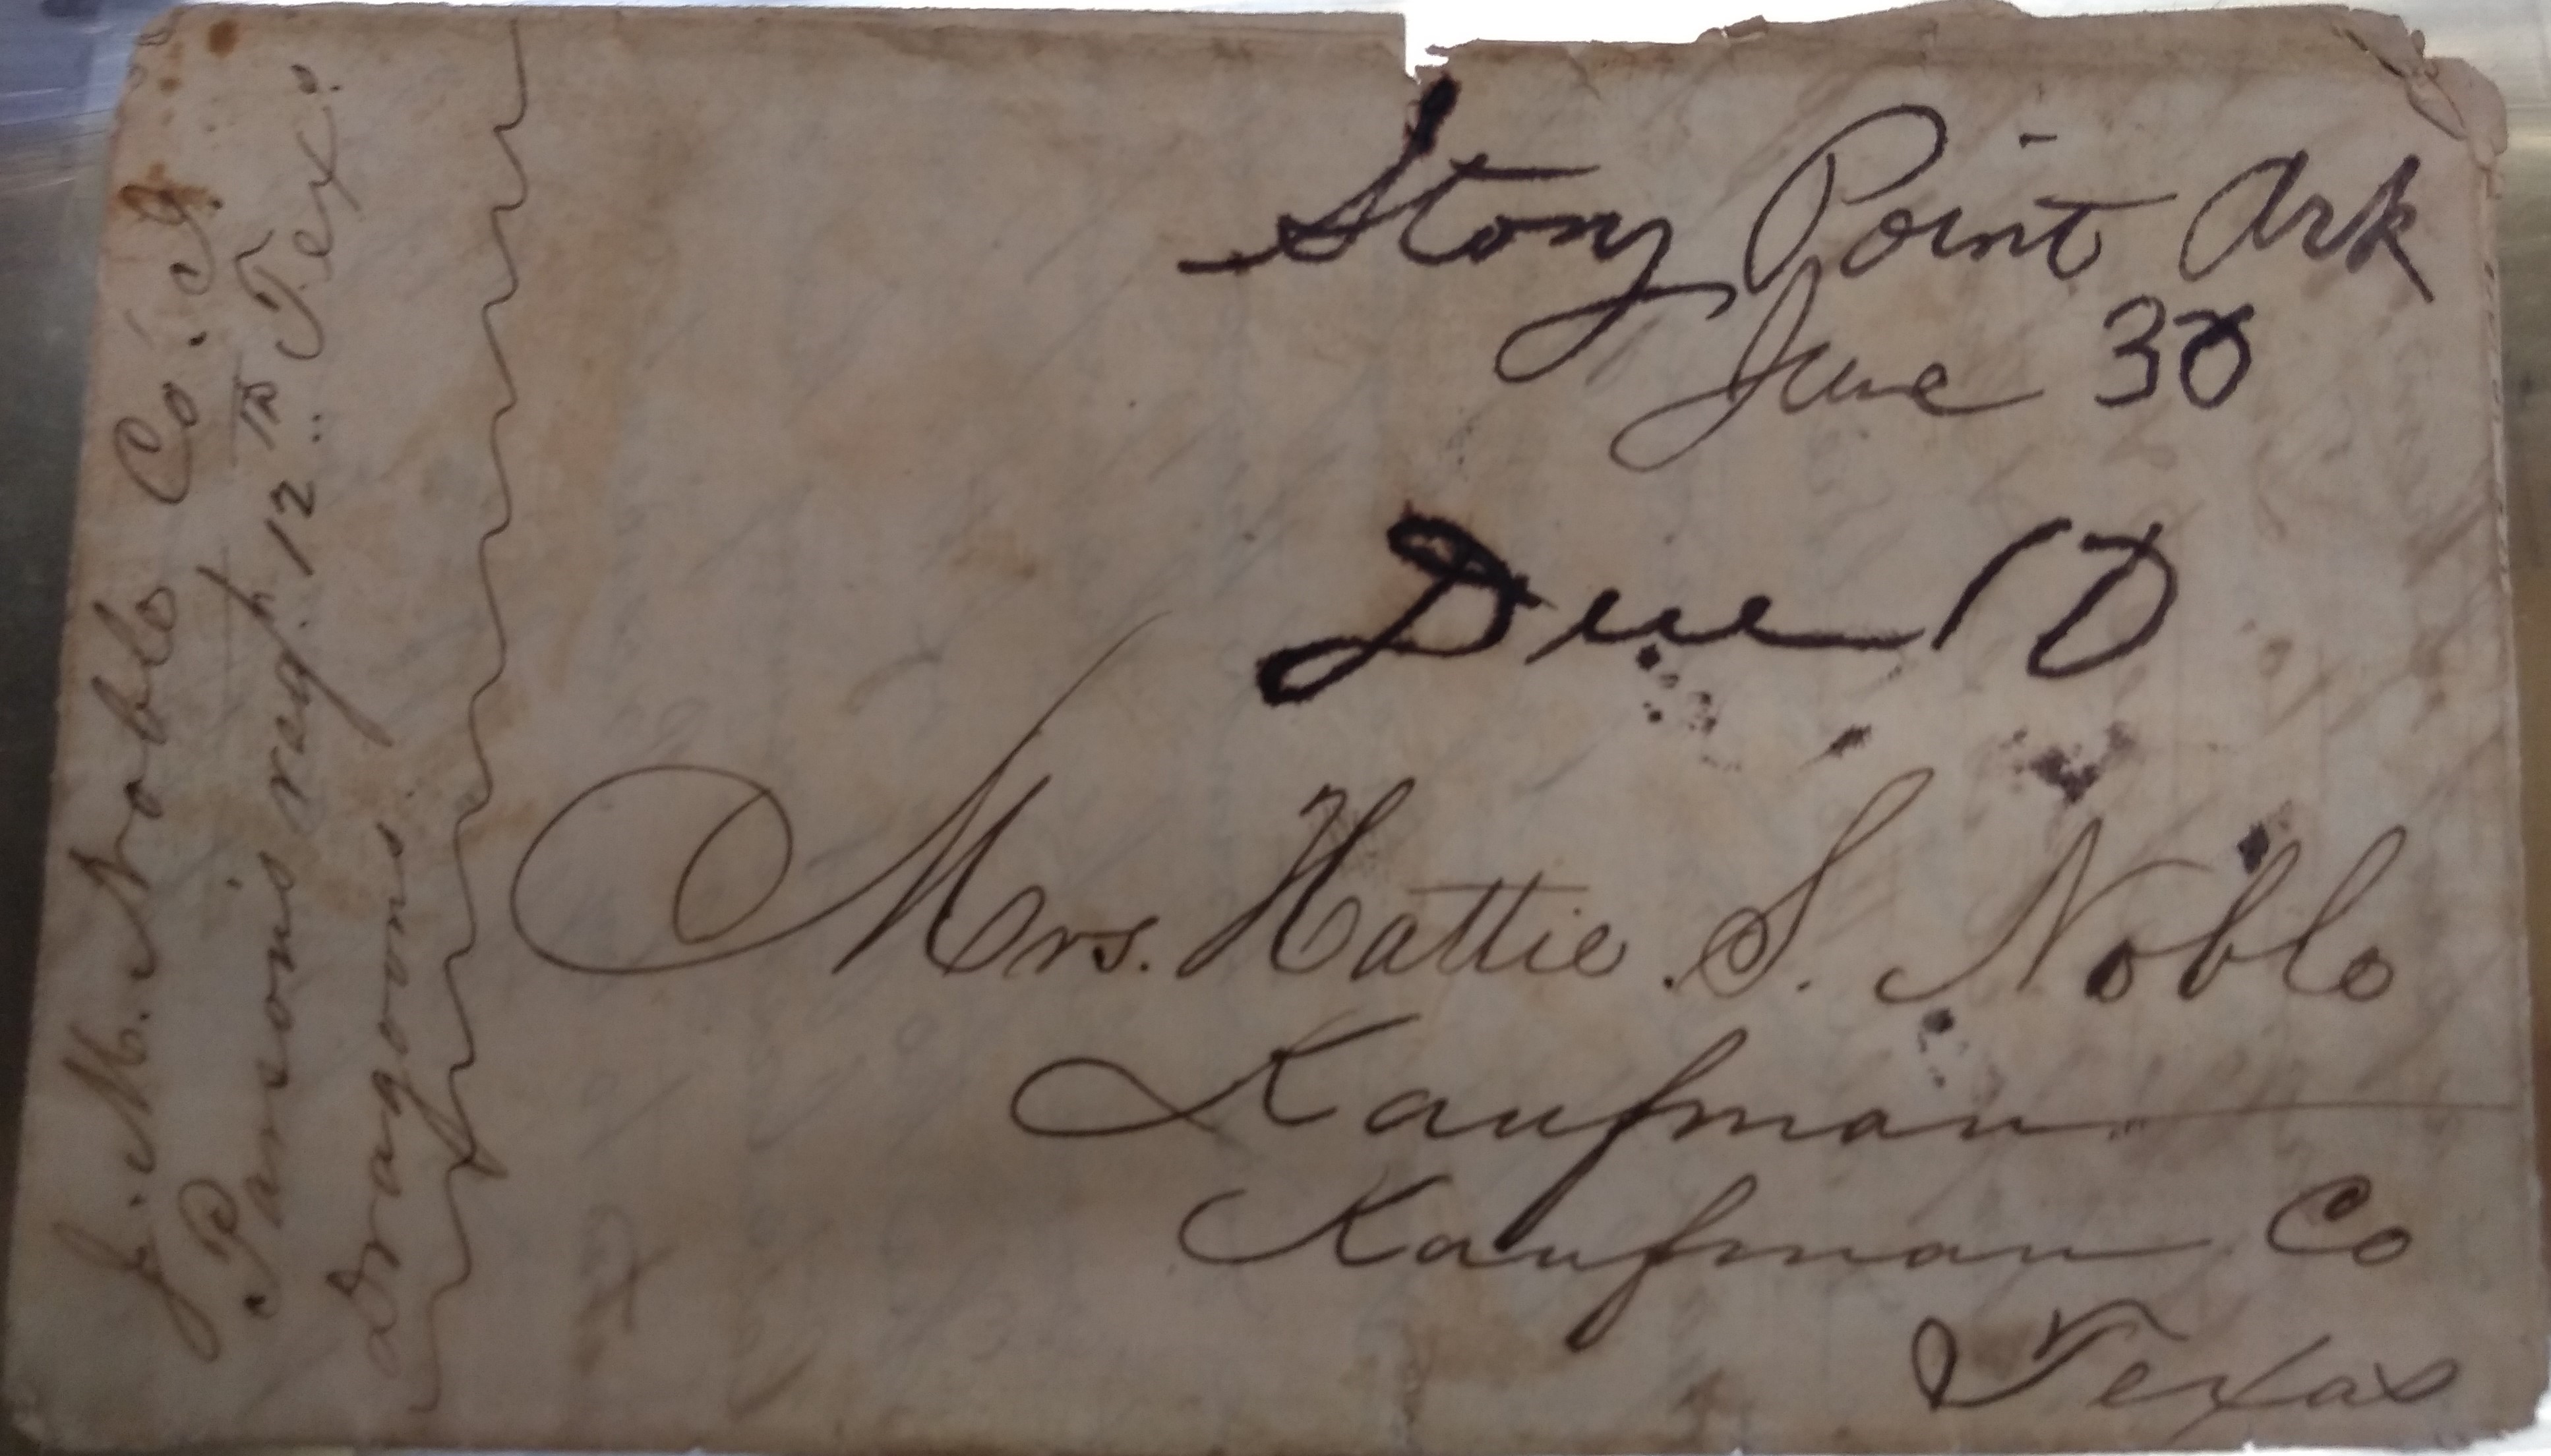 Stony Point Ark
June 30
Due 10
Mrs. Hattie. S. Noble
Kaufman
Kaufman Co
Texas
J. M. Noble Co.
Parsons reg't. 12th Tex.
Dragoons